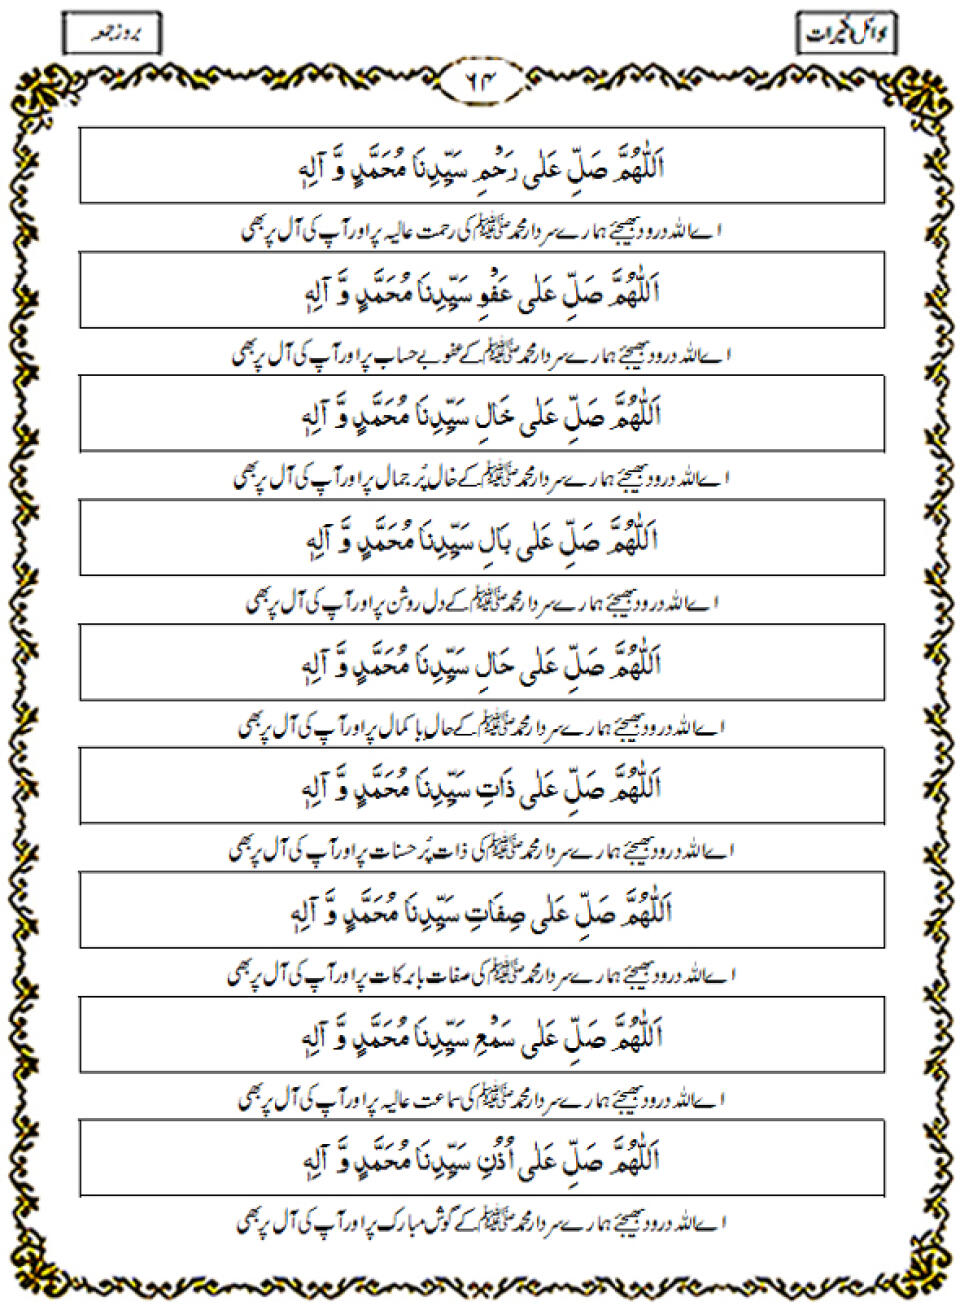 بروز جمعہ
۶۴
اَللّٰهُمَّ صَلِّ عَلٰى رَحْمِ سَيِّدِنَا مُحَمَّدٍ وَّ آلِهٖ
اے اللہ درود بھیجئے ہمارے سردار محمد ﷺ کی رحمت عالیہ پر اور آپ کی آل پر بھی
اَللّٰهُمَّ صَلِّ عَلٰى عَفْوِ سَيِّدِنَا مُحَمَّدٍ وَّ آلِهٖ
اے اللہ درود بھیجئے ہمارے سردار محمد ﷺ کے عفو بے حساب پر اور آپ کی آل پر بھی
اَللّٰهُمَّ صَلِّ عَلٰى خَالِ سَيِّدِنَا مُحَمَّدٍ وَّ آلِهٖ
اے اللہ درود بھیجئے ہمارے سردار محمد ﷺ کے خال پُر جمال پر اور آپ کی آل پر بھی
اَللّٰهُمَّ صَلِّ عَلٰى بَالِ سَيِّدِنَا مُحَمَّدٍ وَّ آلِهٖ
اے اللہ درود بھیجئے ہمارے سردار محمد ﷺ کے دل روشن پر اور آپ کی آل پر بھی
اَللّٰهُمَّ صَلِّ عَلٰى حَالِ سَيِّدِنَا مُحَمَّدٍ وَّ آلِهٖ
اے اللہ درود بھیجئے ہمارے سردار محمد ﷺ کے حال با کمال پر اور آپ کی آل پر بھی
اَللّٰهُمَّ صَلِّ عَلٰى ذَاتِ سَيِّدِنَا مُحَمَّدٍ وَّ آلِهٖ
اے اللہ درود بھیجئے ہمارے سردار محمد ﷺ کی ذات پُر حسنات پر اور آپ کی آل پر بھی
اَللّٰهُمَّ صَلِّ عَلٰى صِفَاتِ سَيِّدِنَا مُحَمَّدٍ وَّ آلِهٖ
اے اللہ درود بھیجئے ہمارے سردار محمد ﷺ کی صفات بابرکات پر اور آپ کی آل پر بھی
اَللّٰهُمَّ صَلِّ عَلٰى سَمْعِ سَيِّدِنَا مُحَمَّدٍ وَّ آلِهٖ
اے اللہ درود بھیجئے ہمارے سردار محمد ﷺ کی سماعت عالیہ پر اور آپ کی آل پر بھی
اَللّٰهُمَّ صَلِّ عَلٰى اُذُنِ سَيِّدِنَا مُحَمَّدٍ وَّ آلِهٖ
اے اللہ درود بھیجئے ہمارے سردار محمد ﷺ کے گوش مبارک پر اور آپ کی آل پر بھی